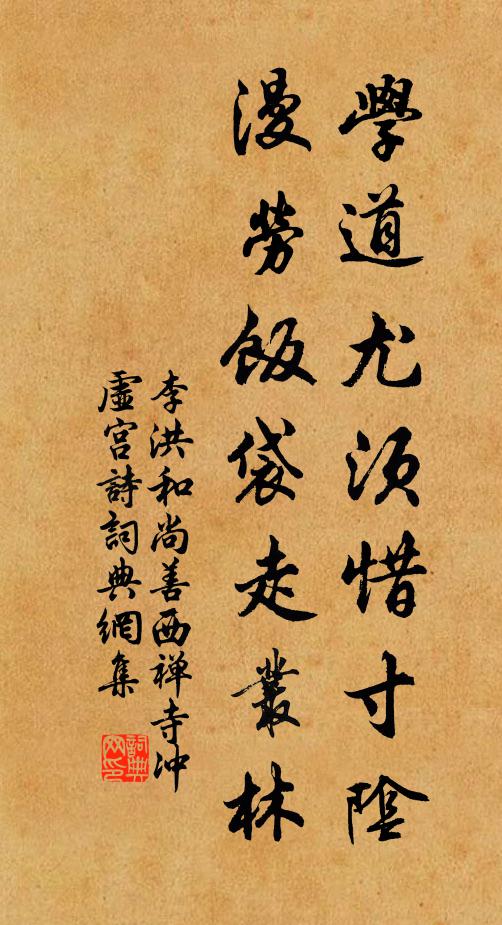 學道尤須惜寸陰
漫勞飯袋走叢林
李洪和尚善西禅寺沖
虛宫詩詞典網集
詞典
网印